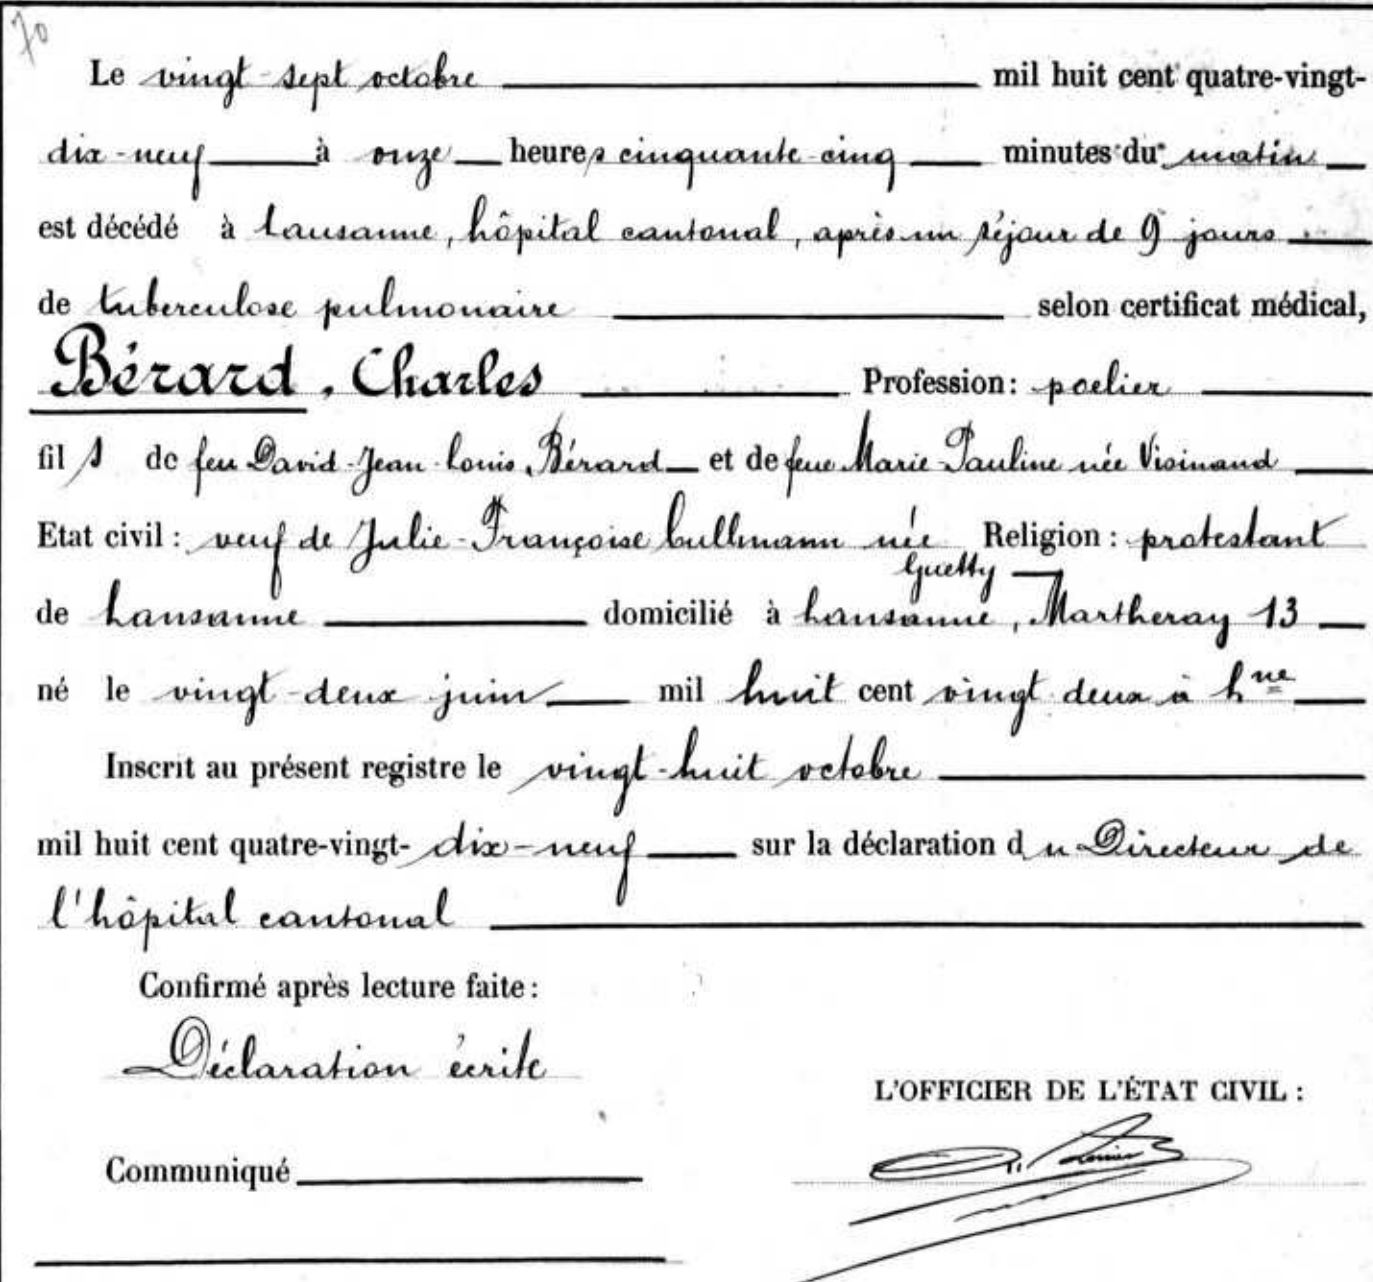 70
Le vingt-sept octobre mil huit cent quatre-vingt-
dix-neuf à onze heures cinquante-cinq minutes du matin
est décédé à Lausanne, hôpital cantonal, après un séjour de 9 jours
de tuberculose pulmonaire selon certificat médical,
Bérard, Charles Profession: poelier
fils de feu David-Jean-Louis Bérard et de feue Marie-Pauline née Visinand
Etat civil: veuf de Julie-Françoise Cullmann née Religion: protestant
Guetty
de Lausanne domicilié à Lausanne, Martheray 13
né le vingt-deux juin mil huit cent vingt deux à Lne
Inscrit au présent registre le vingt-huit octobre
mil huit cent quatre-vingt-dix-neuf sur la déclaration du Directeur de
l'hôpital cantonal
Confirmé après lecture faite:
Déclaration écrite
L'OFFICIER DE L'ÉTAT CIVIL:
Communiqué